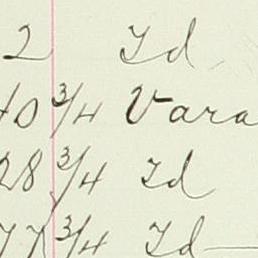 2 Id
40 3/4 Vara
28 3/4 Id
77 3/4 Id